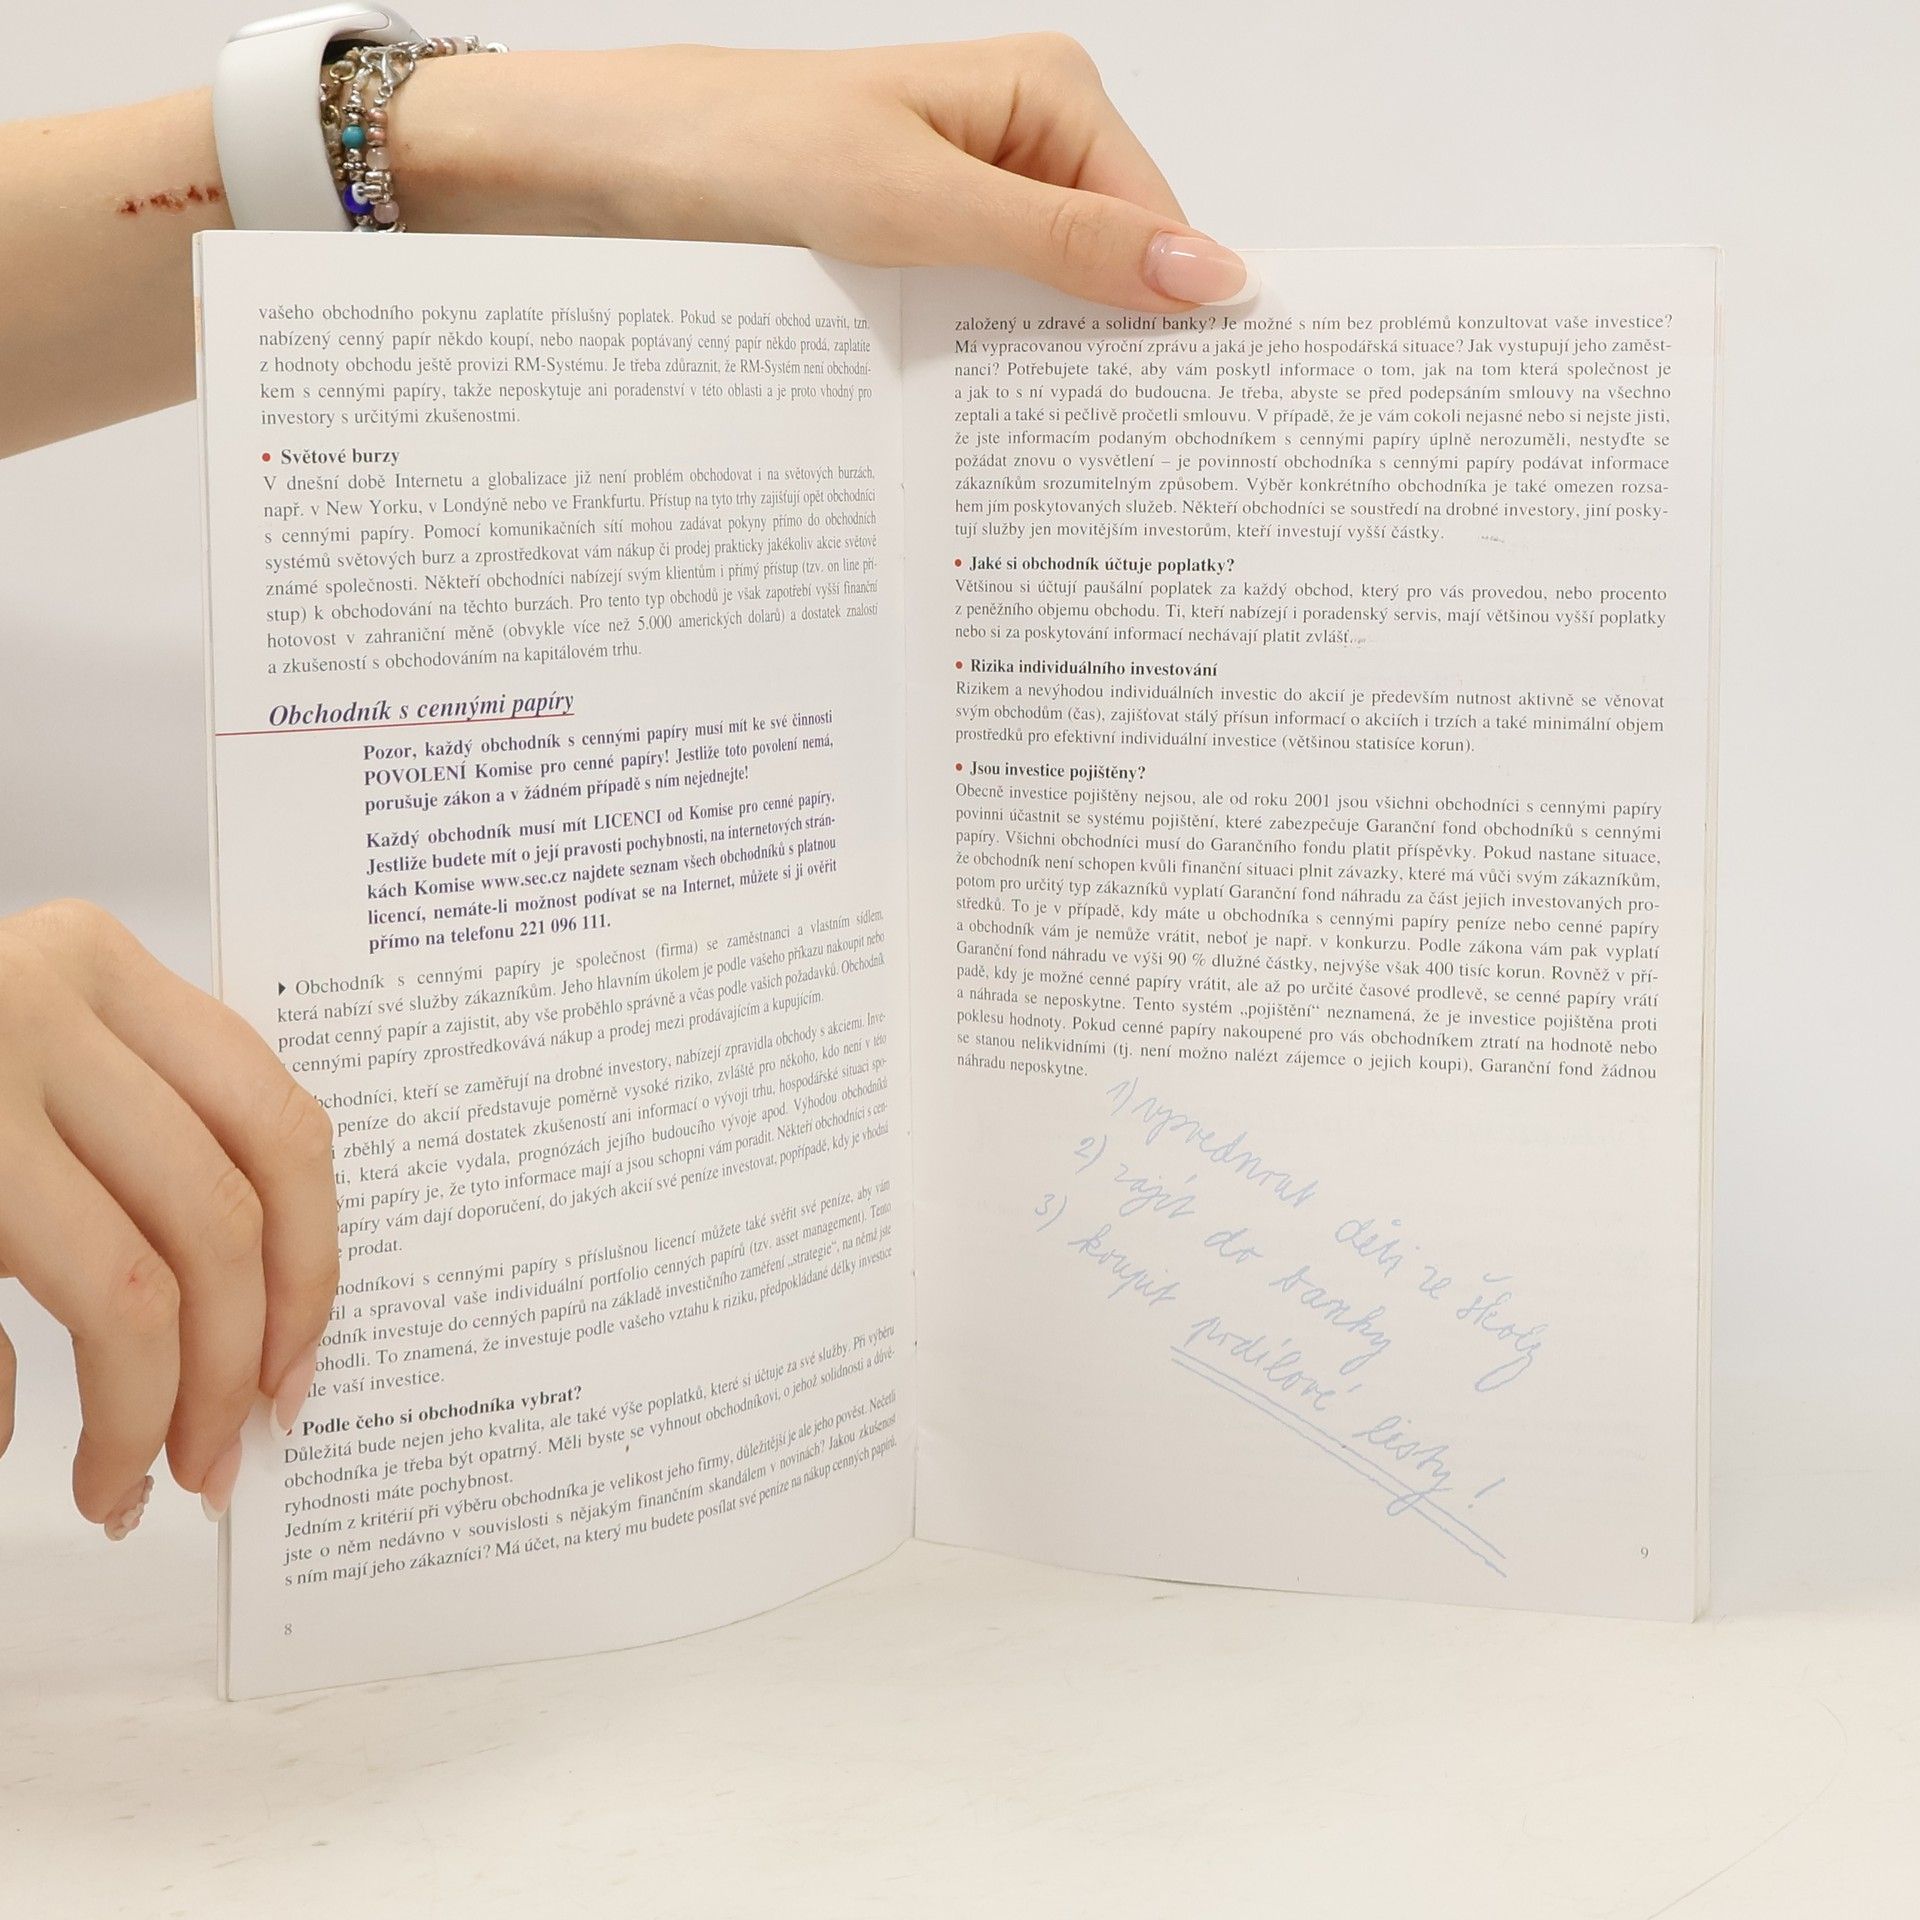 vašeho obchodního pokynu zaplatíte příslušný poplatek. Pokud se podaří obchod uzavřít, tzn.
nabízený cenný papír někdo koupí, nebo naopak poptávaný cenný papír někdo prodá, zaplatíte
z hodnoty obchodu ještě provizi RM-Systému. Je třeba zdůraznit, že RM-Systém není obchodní-
kem s cennými papíry, takže neposkytuje ani poradenství v této oblasti a je proto vhodný pro
investory s určitými zkušenostmi.
• Světové burzy
V dnešní době Internetu a globalizace již není problém obchodovat i na světových burzách,
např. v New Yorku, v Londýně nebo ve Frankfurtu. Přístup na tyto trhy zajišťují opět obchodníci
s cennými papíry. Pomocí komunikačních sítí mohou zadávat pokyny přímo do obchodních
systémů světových burz a zprostředkovat vám nákup či prodej prakticky jakékoliv akcie světově
známé společnosti. Někteří obchodníci nabízejí svým klientům i přímý přístup (tzv. on line pří-
stup) k obchodování na těchto burzách. Pro tento typ obchodů je však zapotřebí vyšší finanční
hotovost v zahraniční měně (obvykle více než 5.000 amerických dolarů) a dostatek znalostí
a zkušeností s obchodováním na kapitálovém trhu.
Obchodník s cennými papíry
Pozor, každý obchodník s cennými papíry musí mít ke své činnosti
POVOLENÍ Komise pro cenné papíry! Jestliže toto povolení nemá,
porušuje zákon a v žádném případě s ním nejednejte!
Každý obchodník musí mít LICENCI od Komise pro cenné papíry.
Jestliže budete mít o její pravosti pochybnosti, na internetových strán-
kách Komise www.sec.cz najdete seznam všech obchodníků s platnou
licencí, nemáte-li možnost podívat se na Internet, můžete si ji ověřit
přímo na telefonu 221 096 111.
Obchodník s cennými papíry je společnost (firma) se zaměstnanci a vlastním sídlem,
která nabízí své služby zákazníkům. Jeho hlavním úkolem je podle vašeho příkazu nakoupit nebo
prodat cenný papír a zajistit, aby vše proběhlo správně a včas podle vašich požadavků. Obchodník
cennými papíry zprostředkovává nákup a prodej mezi prodávajícím a kupujícím.
bchodníci, kteří se zaměřují na drobné investory, nabízejí zpravidla obchody s akciemi. Inve-
peníze do akcií představuje poměrně vysoké riziko, zvláště pro někoho, kdo není v této
i zběhlý a nemá dostatek zkušeností ani informací o vývoji trhu, hospodářské situaci spo-
ti, která akcie vydala, prognózách jejího budoucího vývoje apod. Výhodou obchodníků
ými papíry je, že tyto informace mají a jsou schopni vám poradit. Někteří obchodníci s cen-
apíry vám dají doporučení, do jakých akcií své peníze investovat, popřípadě, kdy je vhodná
e prodat.
hodníkovi s cennými papíry s příslušnou licencí můžete také svěřit své peníze, aby vám
řil a spravoval vaše individuální portfolio cenných papírů (tzv. asset management). Tento
odník investuje do cenných papírů na základě investičního zaměření „strategie“, na němž jste
ohodli. To znamená, že investuje podle vašeho vztahu k riziku, předpokládané délky investice
le vaší investice.
Podle čeho si obchodníka vybrat?
Důležitá bude nejen jeho kvalita, ale také výše poplatků, které si účtuje za své služby. Při výběru
obchodníka je třeba být opatrný. Měli byste se vyhnout obchodníkovi, o jehož solidnosti a důvě-
ryhodnosti máte pochybnost.
Jedním z kritérií při výběru obchodníka je velikost jeho firmy, důležitější je ale jeho pověst. Nečetli
jste o něm nedávno v souvislosti s nějakým finančním skandálem v novinách? Jakou zkušenost
s ním mají jeho zákazníci? Má účet, na který mu budete posílat své peníze na nákup cenných papírů,
8
založený u zdravé a solidní banky? Je možné s ním bez problémů konzultovat vaše investice?
Má vypracovanou výroční zprávu a jaká je jeho hospodářská situace? Jak vystupují jeho zaměst-
nanci? Potřebujete také, aby vám poskytl informace o tom, jak na tom která společnost je
a jak to s ní vypadá do budoucna. Je třeba, abyste se před podepsáním smlouvy na všechno
zeptali a také si pečlivě pročetli smlouvu. V případě, že je vám cokoli nejasné nebo si nejste jisti,
že jste informacím podaným obchodníkem s cennými papíry úplně nerozuměli, nestyďte se
požádat znovu o vysvětlení – je povinností obchodníka s cennými papíry podávat informace
zákazníkům srozumitelným způsobem. Výběr konkrétního obchodníka je také omezen rozsa-
hem jím poskytovaných služeb. Někteří obchodníci se soustředí na drobné investory, jiní posky-
tují služby jen movitějším investorům, kteří investují vyšší částky.
• Jaké si obchodník účtuje poplatky?
Většinou si účtují paušální poplatek za každý obchod, který pro vás provedou, nebo procento
z peněžního objemu obchodu. Ti, kteří nabízejí i poradenský servis, mají většinou vyšší poplatky
nebo si za poskytování informací nechávají platit zvlášť.
• Rizika individuálního investování
Rizikem a nevýhodou individuálních investic do akcií je především nutnost aktivně se věnovat
svým obchodům (čas), zajišťovat stálý přísun informací o akciích i trzích a také minimální objem
prostředků pro efektivní individuální investice (většinou statisíce korun).
• Jsou investice pojištěny?
Obecně investice pojištěny nejsou, ale od roku 2001 jsou všichni obchodníci s cennými papíry
povinni účastnit se systému pojištění, které zabezpečuje Garanční fond obchodníků s cennými
papíry. Všichni obchodníci musí do Garančního fondu platit příspěvky. Pokud nastane situace,
že obchodník není schopen kvůli finanční situaci plnit závazky, které má vůči svým zákazníkům,
potom pro určitý typ zákazníků vyplatí Garanční fond náhradu za část jejich investovaných pro-
středků. To je v případě, kdy máte u obchodníka s cennými papíry peníze nebo cenné papíry
a obchodník vám je nemůže vrátit, neboť je např. v konkurzu. Podle zákona vám pak vyplatí
Garanční fond náhradu ve výši 90 % dlužné částky, nejvýše však 400 tisíc korun. Rovněž v pří-
padě, kdy je možné cenné papíry vrátit, ale až po určité časové prodlevě, se cenné papíry vrátí
a náhrada se neposkytne. Tento systém „pojištění“ neznamená, že je investice pojištěna proti
poklesu hodnoty. Pokud cenné papíry nakoupené pro vás obchodníkem ztratí na hodnotě nebo
se stanou nelikvidními (tj. není možno nalézt zájemce o jejich koupi), Garanční fond žádnou
náhradu neposkytne.
1) vyzvednout děti ze školy
2) zajít do banky
3) koupit podílové listy!
9